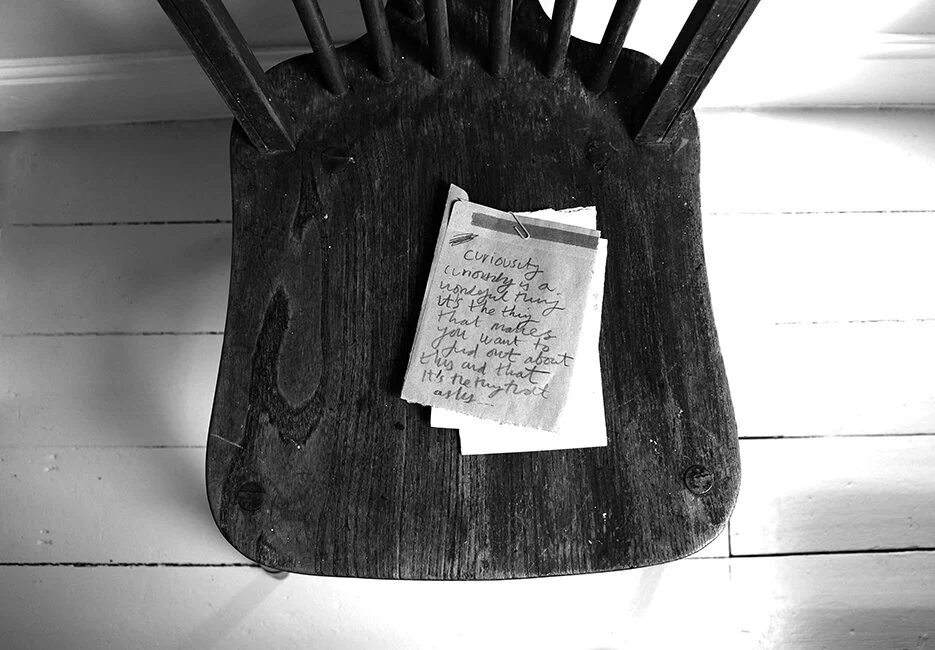 Curiousity
curiousity is a
wonderful thing
it's the thing
that makes
you want to
find out about
this and that
It's the thing that
asks...